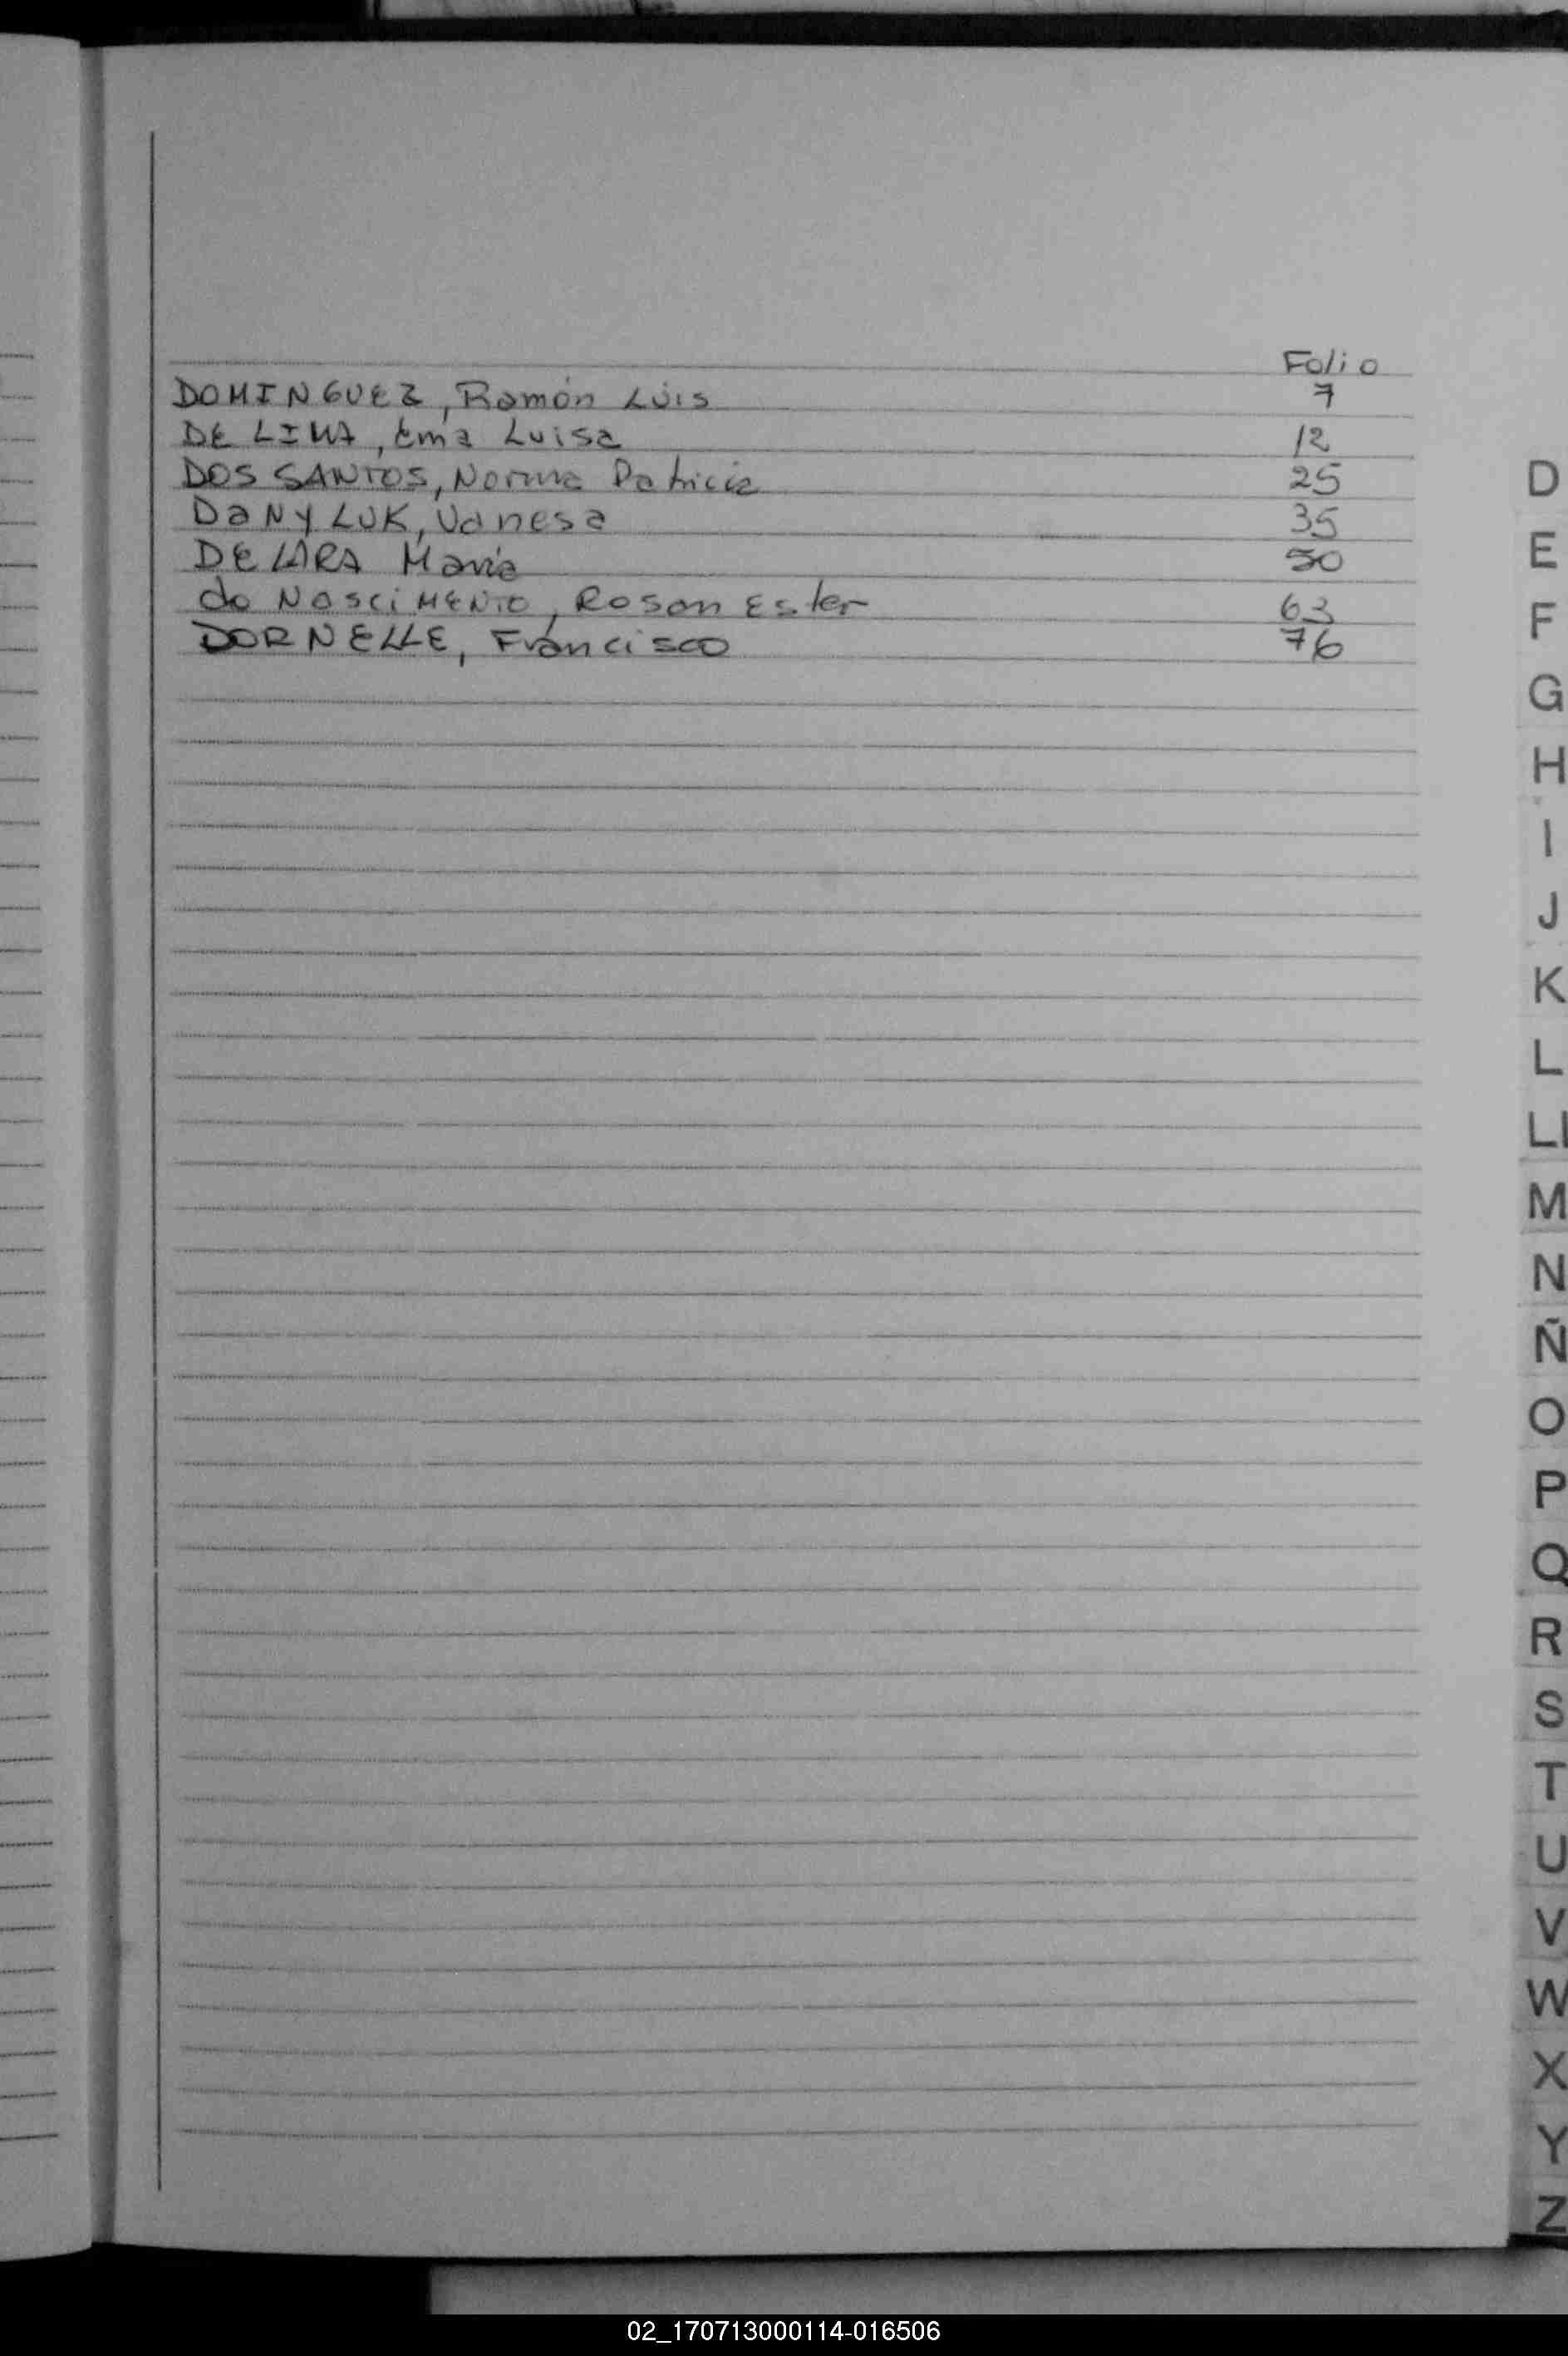 Folio
DOMINGUEZ, Ramón Luis 7
DE LIMA, Ema Luisa 12
DOS SANTOS, Norma Patricia 25
DaNyLUK, Vanesa 35
DE LARA María 50
do NasciMENTO, Roson Ester 63
DORNELLE, Francisco 76
D
E
F
G
H
I
J
K
L
Ll
M
N
Ñ
O
P
Q
R
S
T
U
V
W
X
Y
Z
02_170713000114-016506